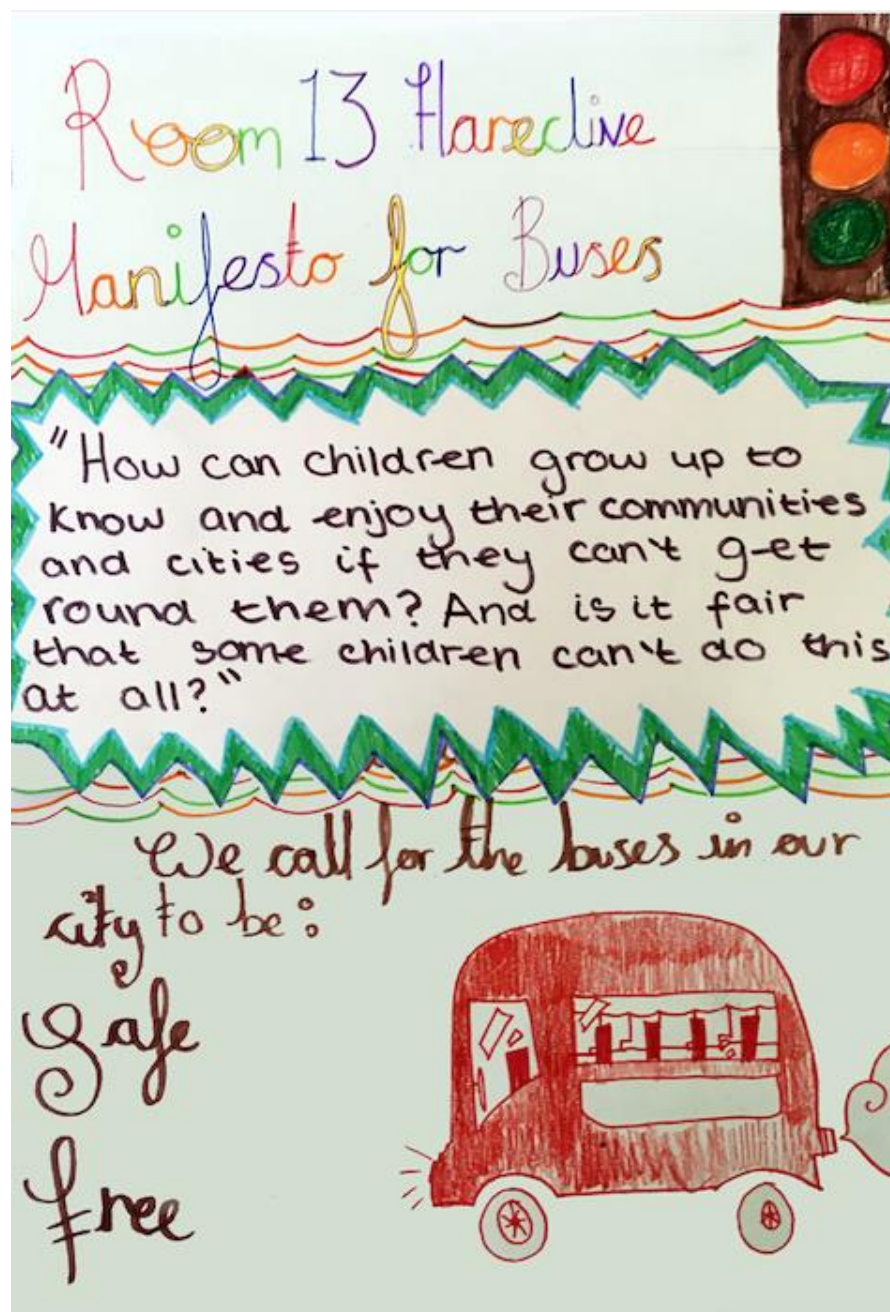 Room 13 Hareclive
Manifesto for Buses
"How can children grow up to
know and enjoy their communities
and cities if they can't get
round them? And is it fair
that some children can't do this
at all?"
We call for the buses in our
city to be:
Safe
Free